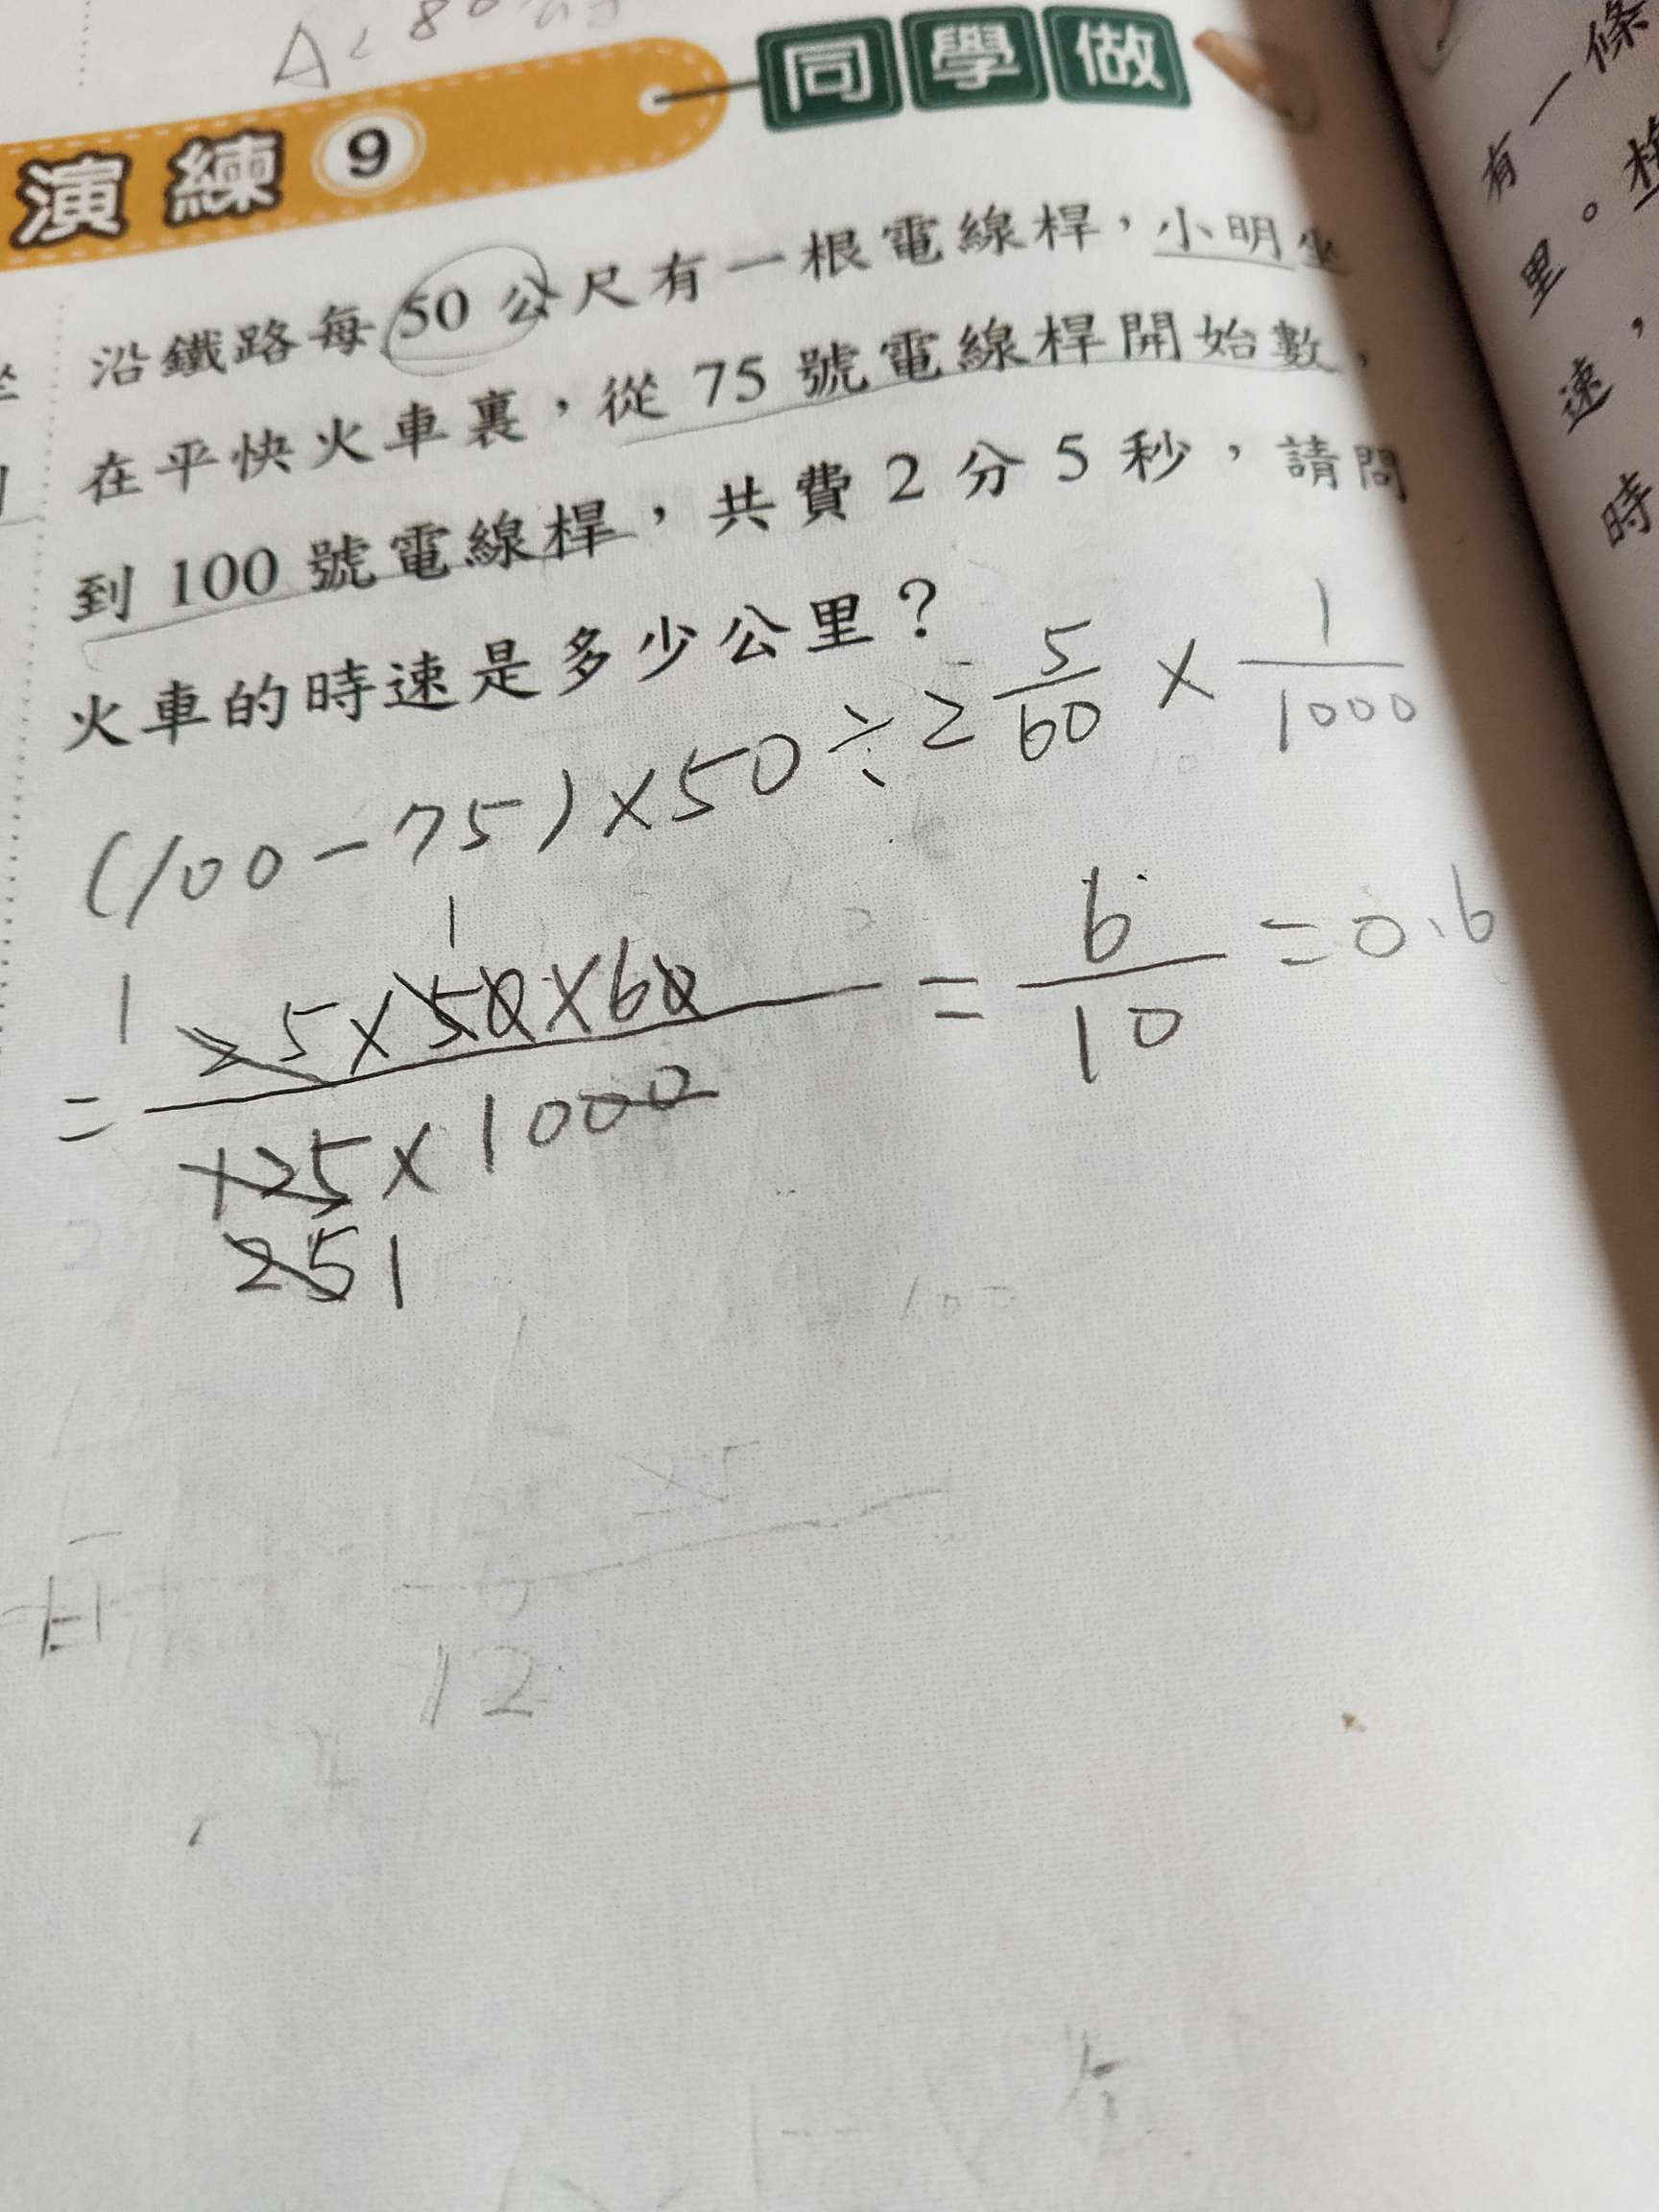 A<80
演練9 同學做
沿鐵路每50公尺有一根電線桿，小明坐
在平快火車裏，從75號電線桿開始數，
到100號電線桿，共費2分5秒，請問
火車的時速是多少公里？
(100-75)×50÷2 5/60 × 1/1000
= 25×50×60 / 125×1000 = 6/10 = 0.6
1
1
25 1
12
有一條
里。
速，
時